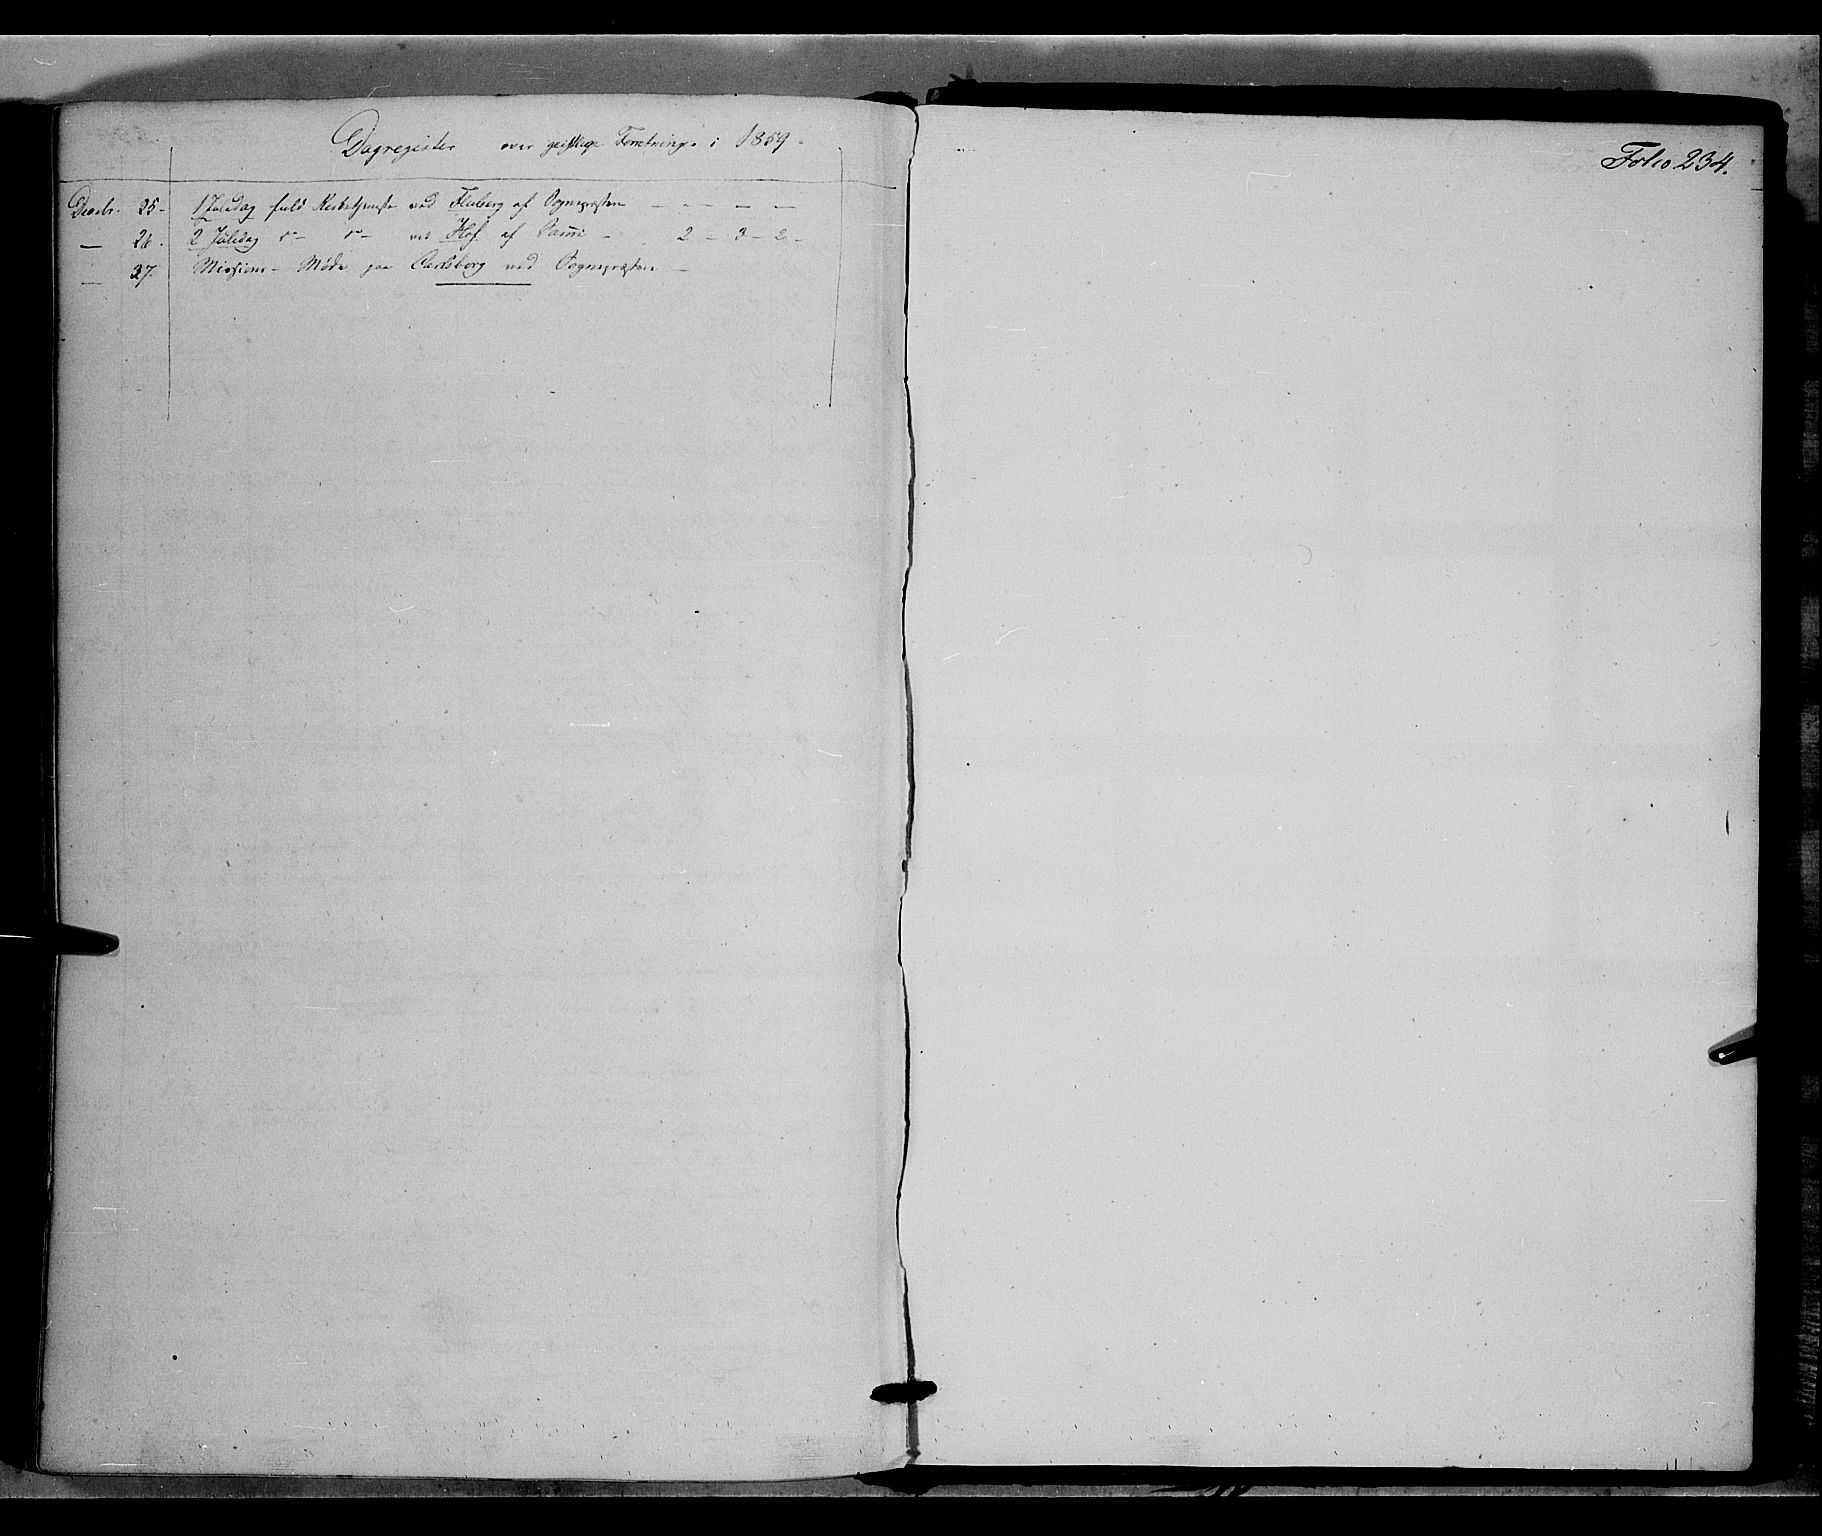 Dagregister over geistlige Forretninger i 1859.
Decbr. 25 - 1 Juledag fuld Kirketjeneste ved Fluberg af Sognepræsten — — — —
— 26. 2 Juledag do do ved Hof af Samme - 2 - 3 - 2 -
— 27. Missions-Møde paa Carlsberg ved Sognepræsten —
Folio 234.